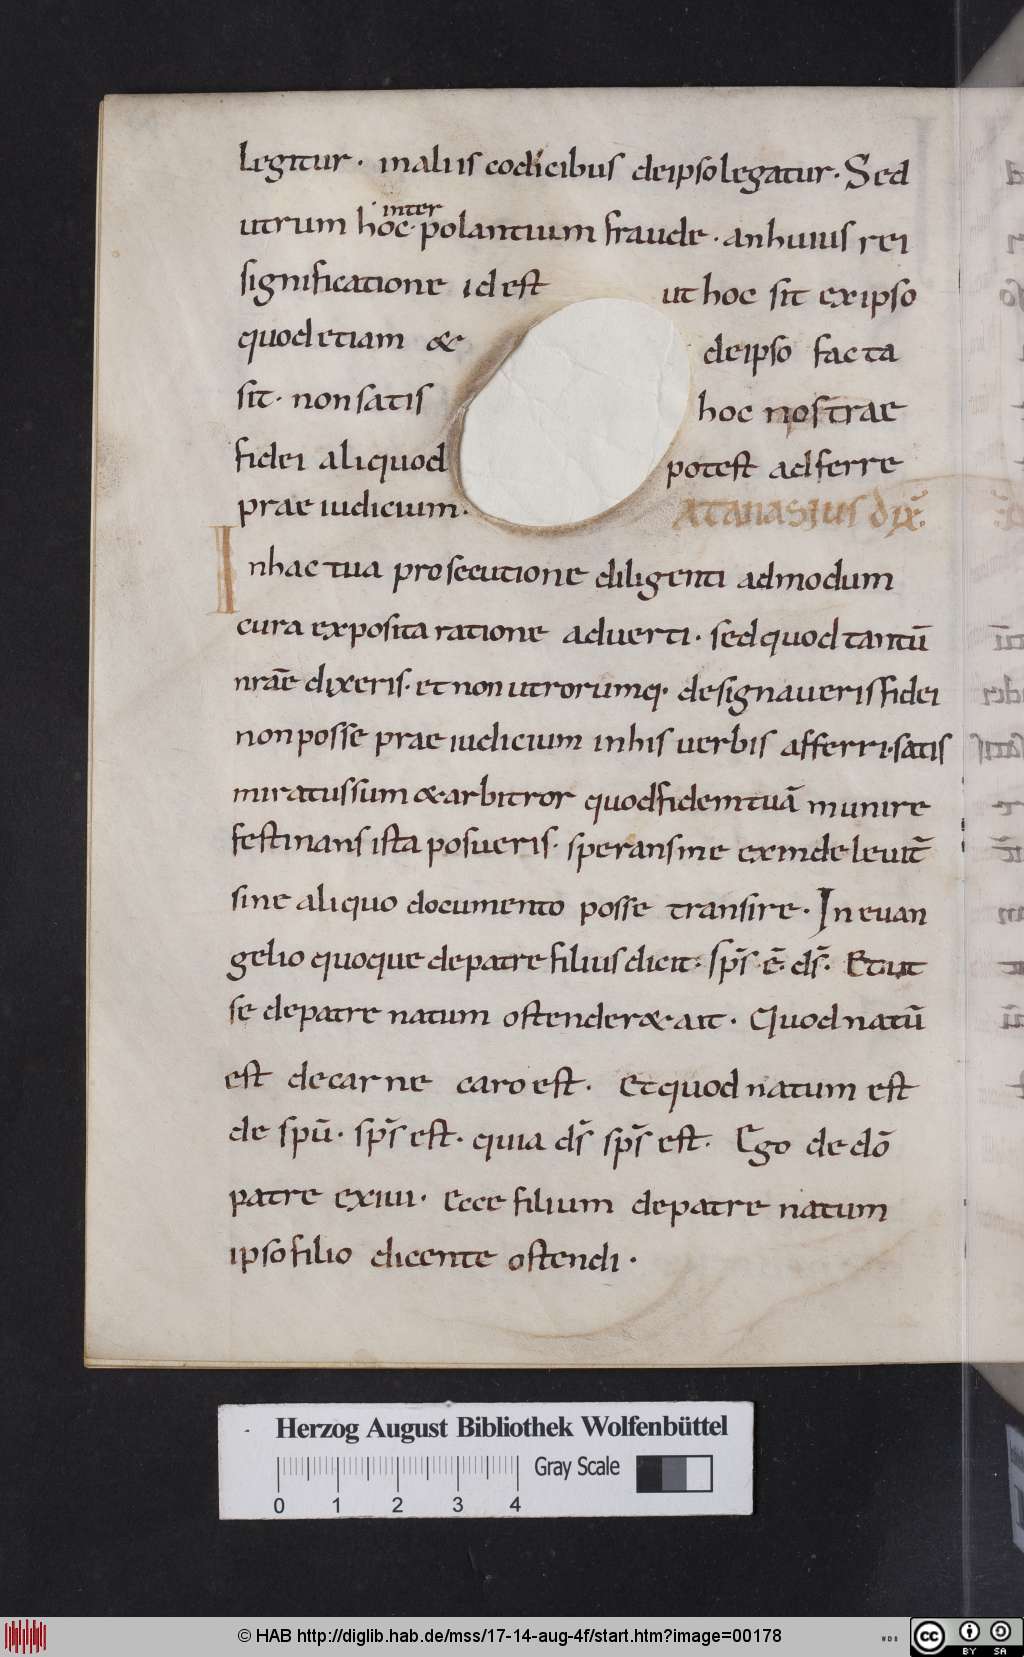 Legitur · in aliis codicibus de ipso legatur · Sed
utrum hoc · interpolantium fraude · an huius rei
significatione id est ut hoc sit ex ipso
quod etiam & de ipso facta
sit · non satis hoc nostrae
fidei aliquod potest adferre
prae iudicium · ATANASIUS dix̄ ·
In hac tua prosecutione diligenti admodum
cura exposita ratione aduerti · sed quod tantū
nr̄ae dixeris · et non utrorumq· designaueris fidei
non posse prae iudicium in his uerbis afferri · satis
miratus sum & arbitror quod fidem tuā munire
festinans ista posueris · sperans me exinde leuit̄
sine aliquo documento posse transire · In euan
gelio quoque de patre filius dicit · sp̄s · ē · ds̄ · Et ut
se de patre natum ostender& ait · Quod natū
est de carne caro est · Et quod natum est
de spū · sp̄s est · quia ds̄ sp̄s est · Ego de dō
patre exiui · Ecce filium de patre natum
ipso filio dicente ostendi ·
Herzog August Bibliothek Wolfenbüttel
Gray Scale
0 1 2 3 4
© HAB http://diglib.hab.de/mss/17-14-aug-4f/start.htm?image=00178
WDB
cc BY SA